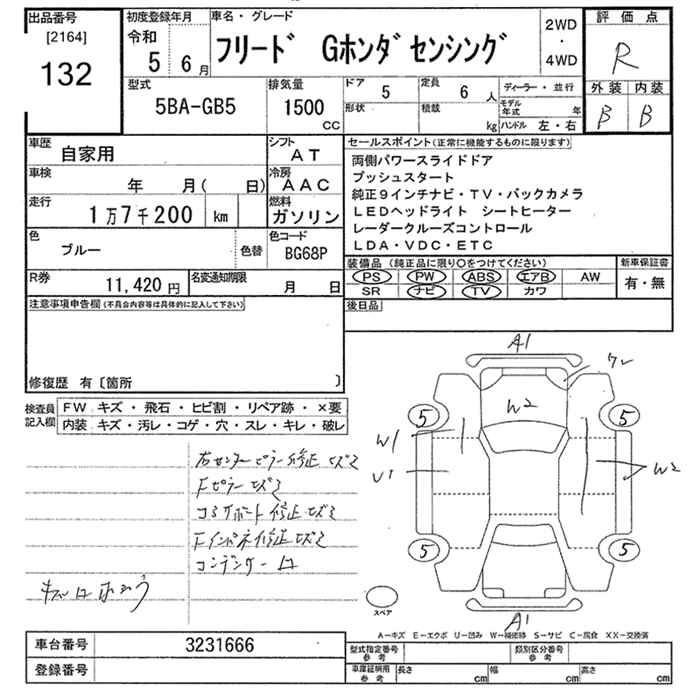 出品番号
[2164]
132
初度登録年月
令和
5 6月
車名・グレード
フリード Gホンダセンシング
2WD
・
4WD
評価点
R
外装 内装
B B
型式
5BA-GB5
排気量
1500
CC
ドア 5
形状
定員 6人
積載 kg
ディーラー・並行
モデル年式 年
ハンドル 左・右
車歴 自家用
シフト AT
車検 年 月( 日)
冷房 AAC
走行 1万7千200 km
燃料 ガソリン
色 ブルー
色替
色コード BG68P
R券 11,420円
名変通知期限 月 日
セールスポイント(正常に機能するものに限ります)
両側パワースライドドア
プッシュスタート
純正9インチナビ・TV・バックカメラ
LEDヘッドライト シートヒーター
レーダークルーズコントロール
LDA・VDC・ETC
装備品(純正品に限り○をつけてください)
PS PW ABS エアB AW
SR ナビ TV カワ
新車保証書
有・無
後日品
注意事項申告欄(不具合内容等は具体的に記入して下さい)
修復歴 有〔箇所 〕
検査員記入欄
FW キズ・飛石・ヒビ割・リペア跡・×要
内装 キズ・汚レ・コゲ・穴・スレ・キレ・破レ
右センターピラー修正キズミ
Fピラーキズミ
コアサポート修正キズミ
Fインパネ修正キズミ
コンデンサー
A1
W2
5 5
W1
U1
W2
5 5
A1
スペア
A－キズ E－エクボ U－凹み W－補修跡 S－サビ C－腐食 XX－交換済
車台番号 3231666
登録番号
型式指定番号
参考
類別区分番号
参考
車庫証明用
参考
長さ cm 幅 cm 高さ cm